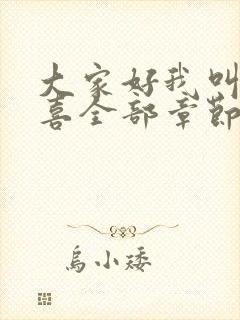 大家好我叫
喜全部章節
乌小矮